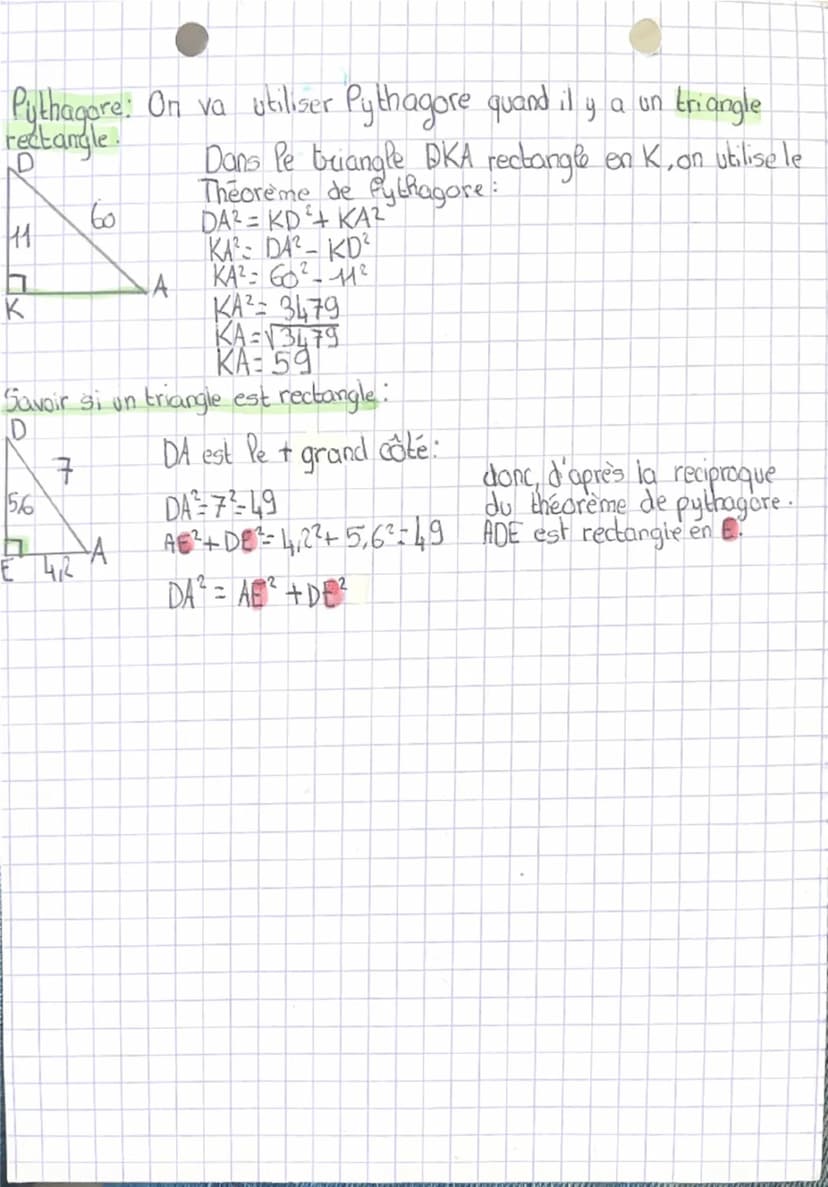 Pythagore: On va utiliser Pythagore quand il y a un triangle
rectangle.
D
11
60
K
A
Dans le triangle DKA rectangle en K, on utilise le
Théorème de Pythagore:
DA² = KD² + KA²
KA² = DA² - KD²
KA² = 60² - 11²
KA² = 3479
KA = √3479
KA = 59
Savoir si un triangle est rectangle:
D
7
5,6
E
4,2
A
DA est le + grand côté:
DA² = 7² = 49
AE² + DE² = 4,2² + 5,6² = 49
DA² = AE² + DE²
donc, d'après la reciproque
du théorème de pythagore.
ADE est rectangle en E.